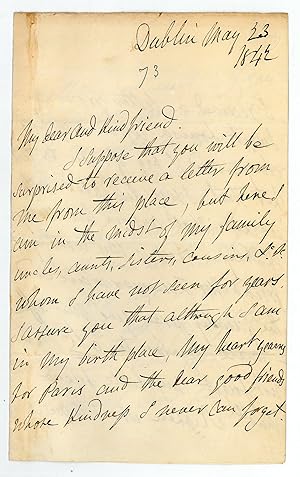 Dublin May 23
1842
73
My dear and kind friend.
I suppose that you will be
surprised to receive a letter from
me from this place, but here I
am in the midst of my family
uncles, aunts, sisters, cousins, &c
whom I have not seen for years.
I assure you that although I am
in my birth place, My heart yearns
for Paris and the dear good friends
whose kindness I never can forget.